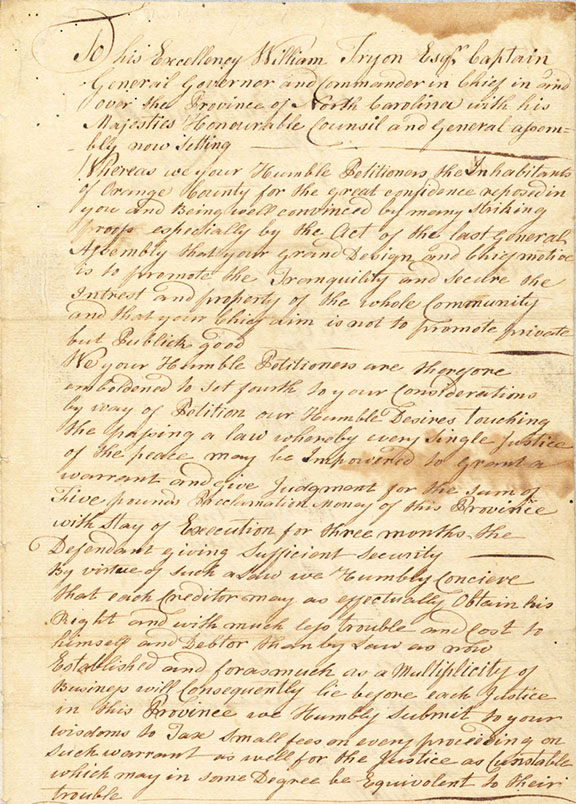 To his Excellency William Tryon Esqr. Captain
General Governor and Commander in Chief in and
over the Province of North Carolina with his
Majesties Honourable Counsil and General assem-
bly now Sitting
Whereas we your Humble Petitioners the Inhabitants
of Orange County for the great confidence reposed in
you and Being well convinced by many striking
proofs especially by the Act of the last General
Assembly that your Grand Design and Chief motive
is to promote the Tranquility and Secure the
Intrest and property of the whole Community
and that your Chief aim is not to promote private
but Publick good
We your Humble Petitioners are therfore
emboldened to Set fourth to your Considerations
by way of Petition our Humble Desires touching
the passing a law whereby every Single Justice
of the peace may be Impowered to grant a
warrant and give Judgment for the Sum of
Five pounds Proclamation Money of this Province
with Stay of Execution for three months the
Defendant giving Sufficient Security
By virtue of such a Law we Humbly Concieve
that each Creditor may as effectually Obtain his
Right and with much less trouble and Cost to
himself and Debtor than by Law as now
Established and forasmuch as a Multiplicity of
Business will Consequently lie before each Justice
in this Province we Humbly Submit to your
wisdoms to Tax Small fees on every proceeding on
Such warrant as well for the Justice as Constable
which may in some Degree be Equivolent to their
trouble